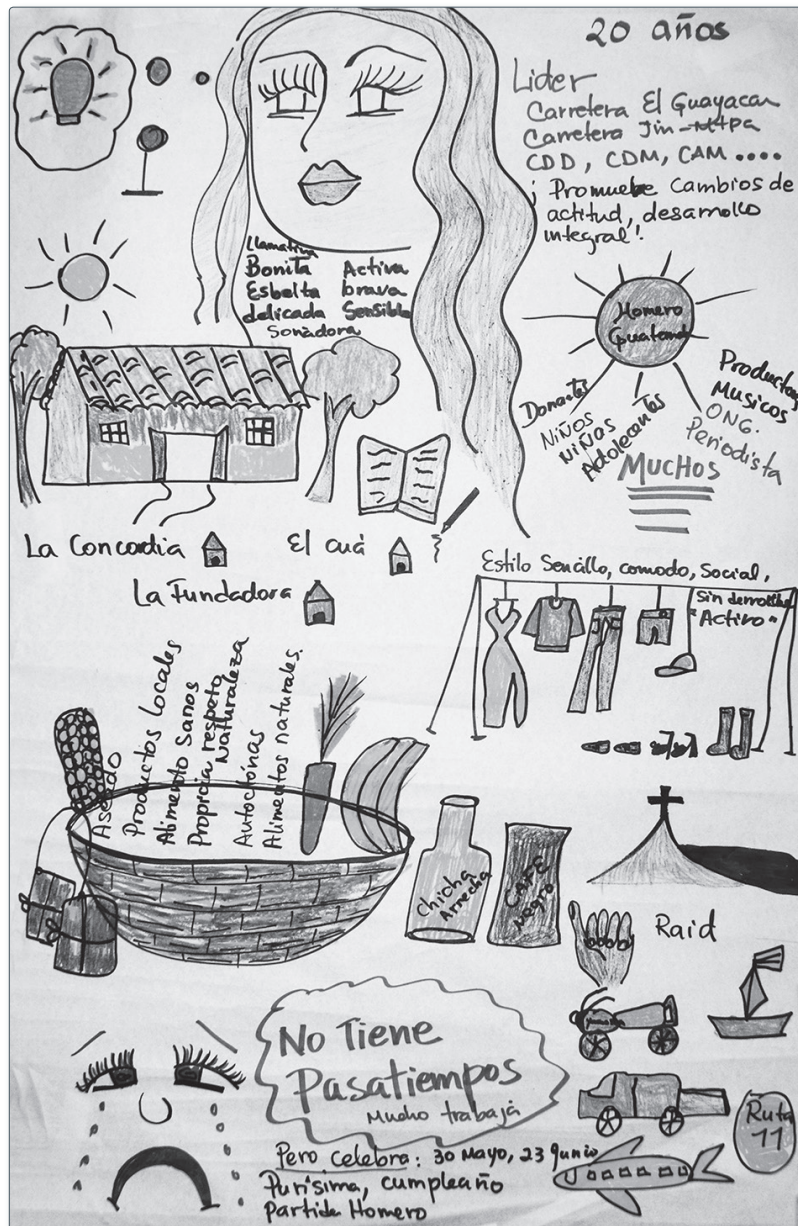 20 años
Lider
Carretera El Guayacan
Carretera Jin-
CDD, CDM, CAM ....
¡Promuebe cambios de
actitud, desarrollo
integral!
Llamativa
Bonita Activa
Esbelta brava
delicada Sensible
Soñadora
Homero
Guatemala
Donantes
NIÑOS
NIÑAS
Adolecentes
Productores
Musicos
ONG.
Periodista
MUCHOS
La Concordia
El cuá
La Fundadora
Estilo Sencillo, comodo, Social,
Sin derroche
"Activo"
Aseado
Productos Locales
Alimento Sanos
Propicia respeto
Naturaleza
Autoctonas
Alimentos naturales.
Chicha
Arrecha
CAFE
Negro
Raid
No Tiene
Pasatiempos
Mucho trabaja
Ruta
11
Pero celebra: 30 Mayo, 23 Junio
Purisima, cumpleaño
Partida Homero